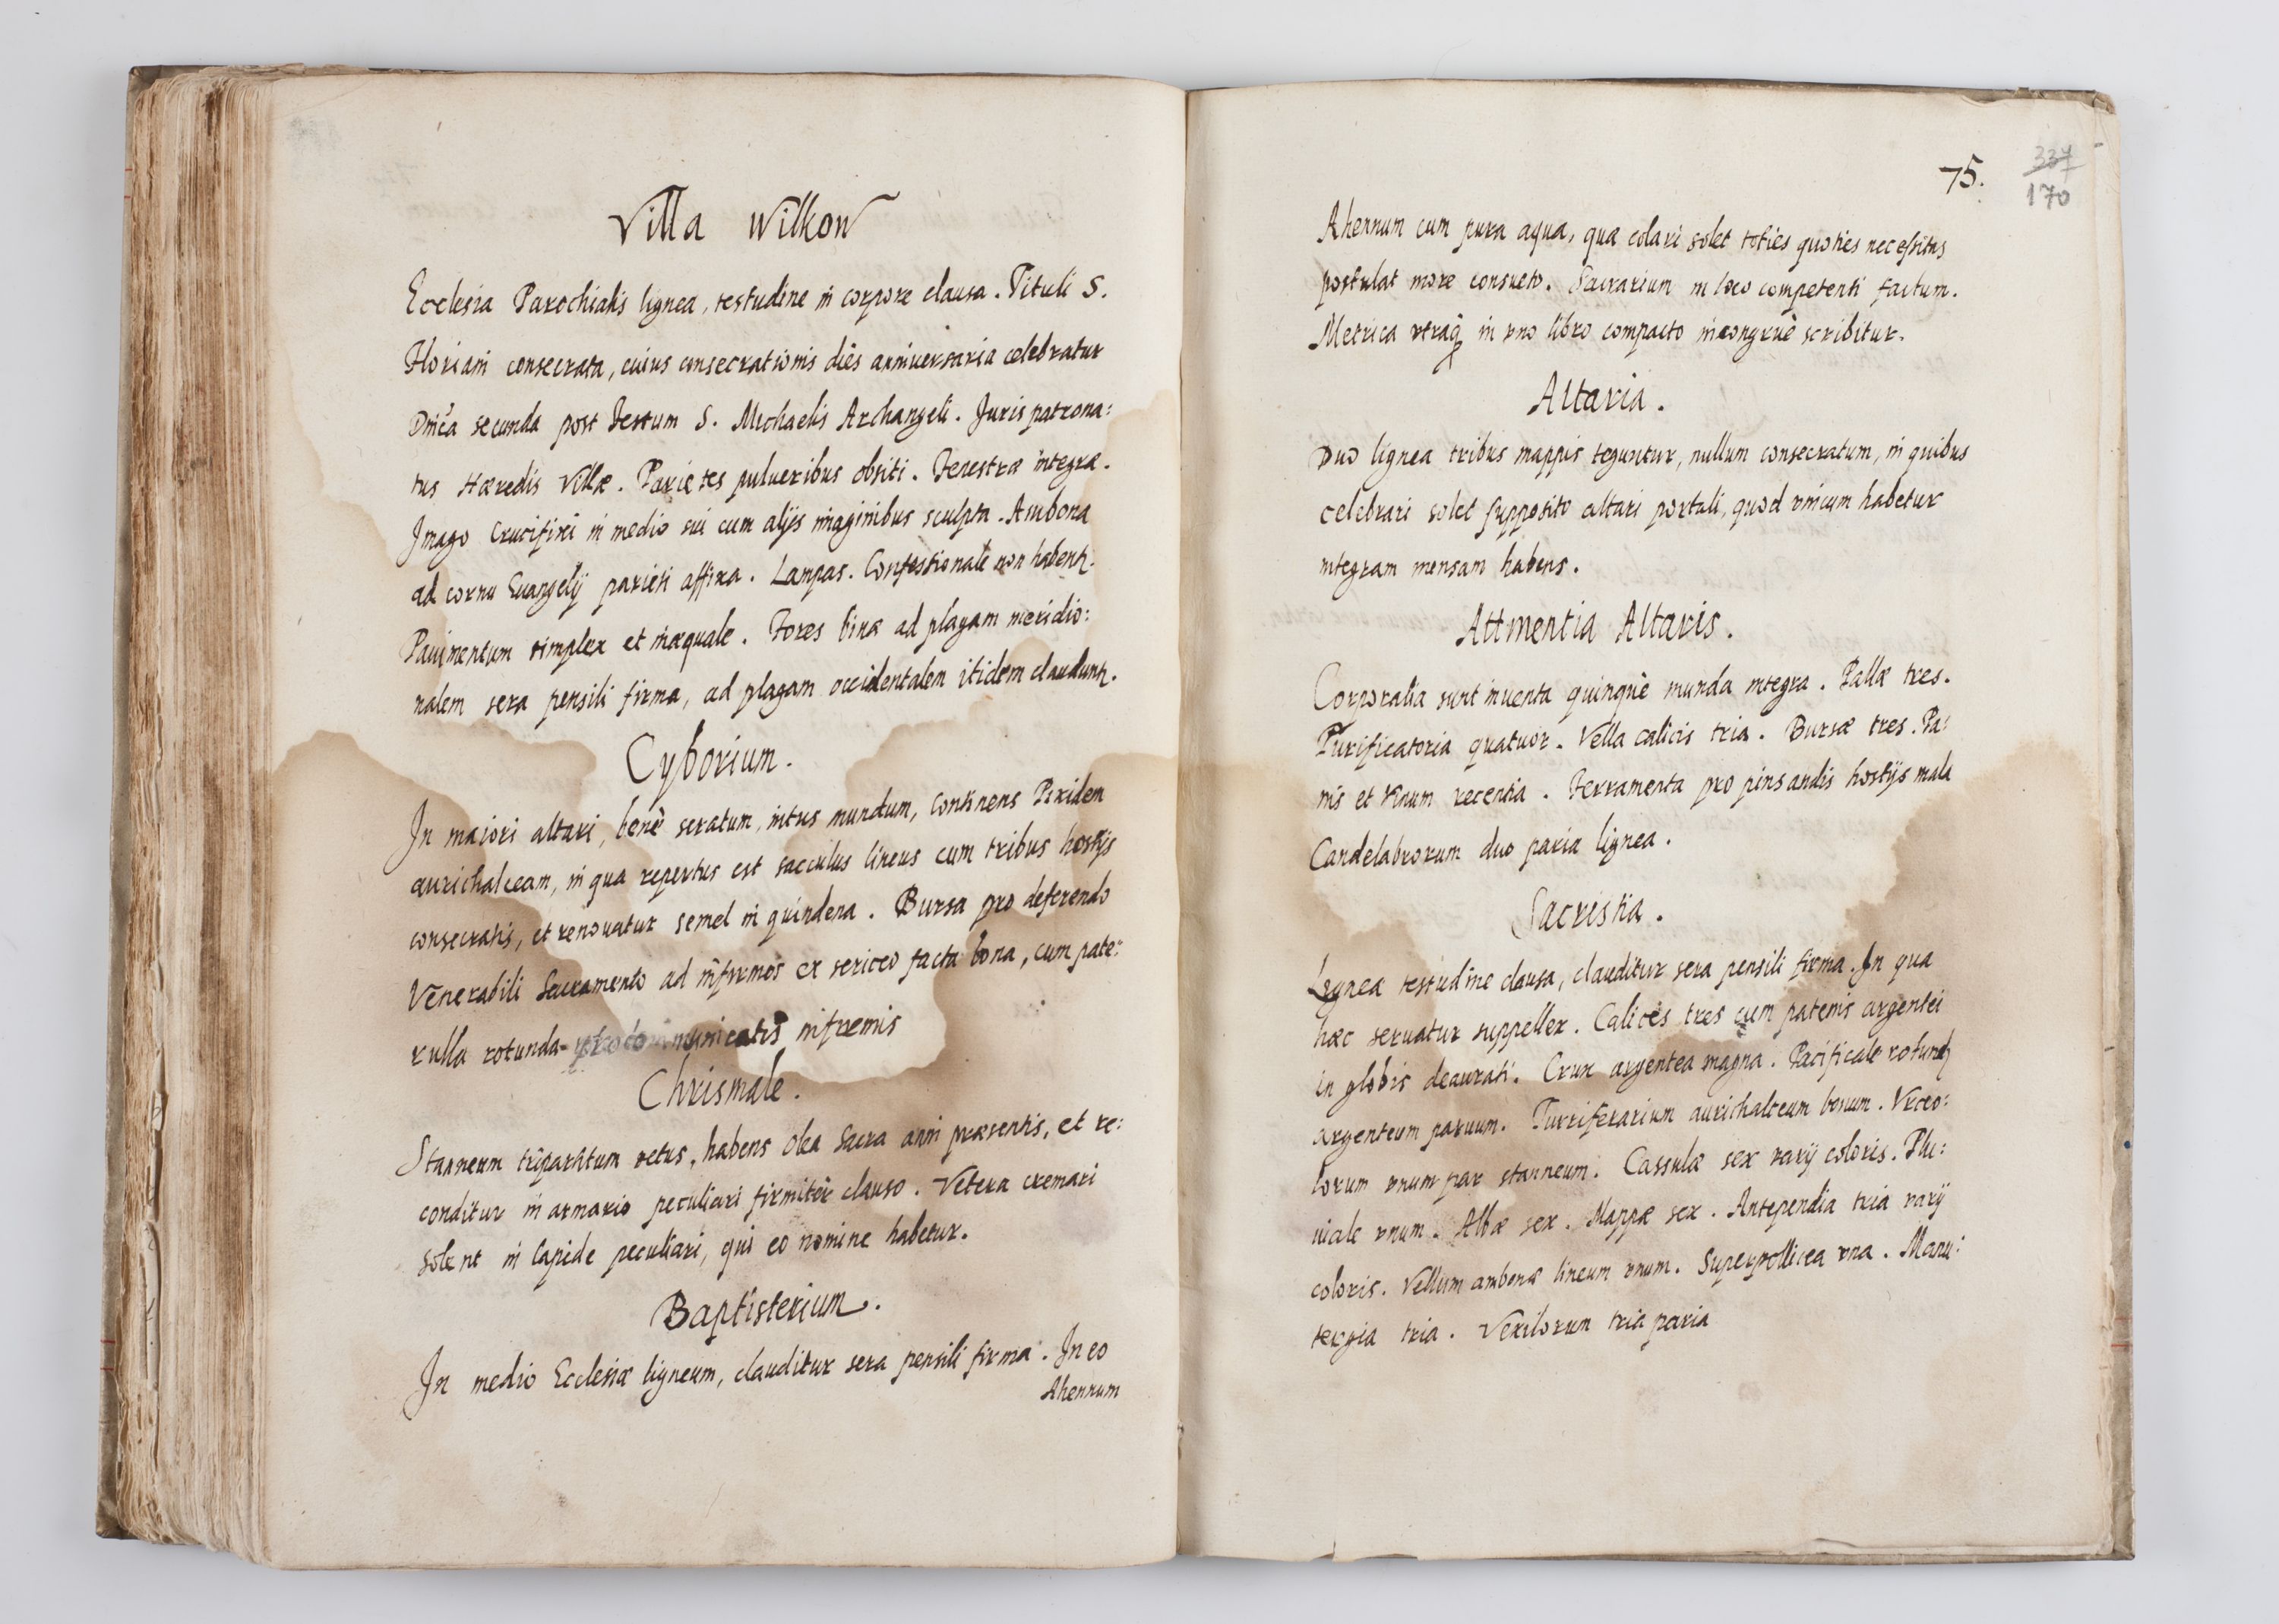 Villa Wilkow
Ecclesia Parochialis lignea, testudine in corpore clausa. Tituli S.
Floriani consecrata, cuius consecrationis dies anniuersaria celebratur
Dnica secunda post Festum S. Michaelis Archangeli. Juris patrona:
tus Hæredis Villæ. Parietes pulueribus obsiti. Fenestræ integræ.
Jmago Crucifixi in medio sui cum alijs imaginibus sculpta. Ambona
ad cornu Euangelij parieti affixa. Lampas. Confessionale non habent.
Pauimentum simplex et inæquale. Fores binæ ad plagam meridio:
nalem sera pensili firma, ad plagam occidentalem itidem claudunt.
Cyborium.
Jn maiori altari, benè seratum, intus mundum, continens Pixidem
aurichalceam, in qua repertus est sacculus lineus cum tribus hostijs
consecratis, et renouatur semel in quindena. Bursa pro deferendo
Venerabili Sacramento ad infirmos ex sericeo facta bona, cum pate:
rulla rotunda pro communicatis infirmis
Chrismale.
Stanneum tripartitum vetus, habens Olea Sacra anni præsentis, et re:
conditur in armario peculiari firmitèr clauso. Vetera cremari
solent in lapide peculiari, qui eo nomine habetur.
Baptisterium.
Jn medio Ecclesiæ ligneum, clauditur sera pensili firma. Jn eo
Ahennum
75.
337
170
Ahennum cum pura aqua, quæ colari solet toties quoties necessitas
postulat more consueto. Sacrarium in loco competenti factum.
Metrica vtraq in vno libro compacto incongruè scribitur.
Altaria.
Duo lignea tribus mappis teguntur, nullum consecratum, in quibus
celebrari solet supposito altari portali, quod vnicum habetur
integram mensam habens.
Attinentia Altaris.
Corporalia sunt inuenta quinquè munda integra. Pallæ tres.
Purificatoria quatuor. Vella calicis tria. Bursæ tres. Pa:
nis et Vinum recentia. Ferramenta pro pinsandis hostijs mala
Candelabrorum duo paria lignea.
Sacristia.
Lignea testudine clausa, clauditur sera pensili firma. Jn qua
hæc seruatur suppellex. Calices tres cum patenis argentei
in globis deaurati. Crux argentea magna. Pacificale rotund
argenteum paruum. Turriferarium aurichalceum bonum. Vrceo:
lorum vnum par stanneum. Cassulæ sex varij coloris. Plu:
uiale vnum. Albæ sex. Mappæ sex. Antependia tria varij
coloris. Vellum ambonæ lineum vnum. Superpollicea vna. Manu:
tergia tria. Vexilorum tria paria